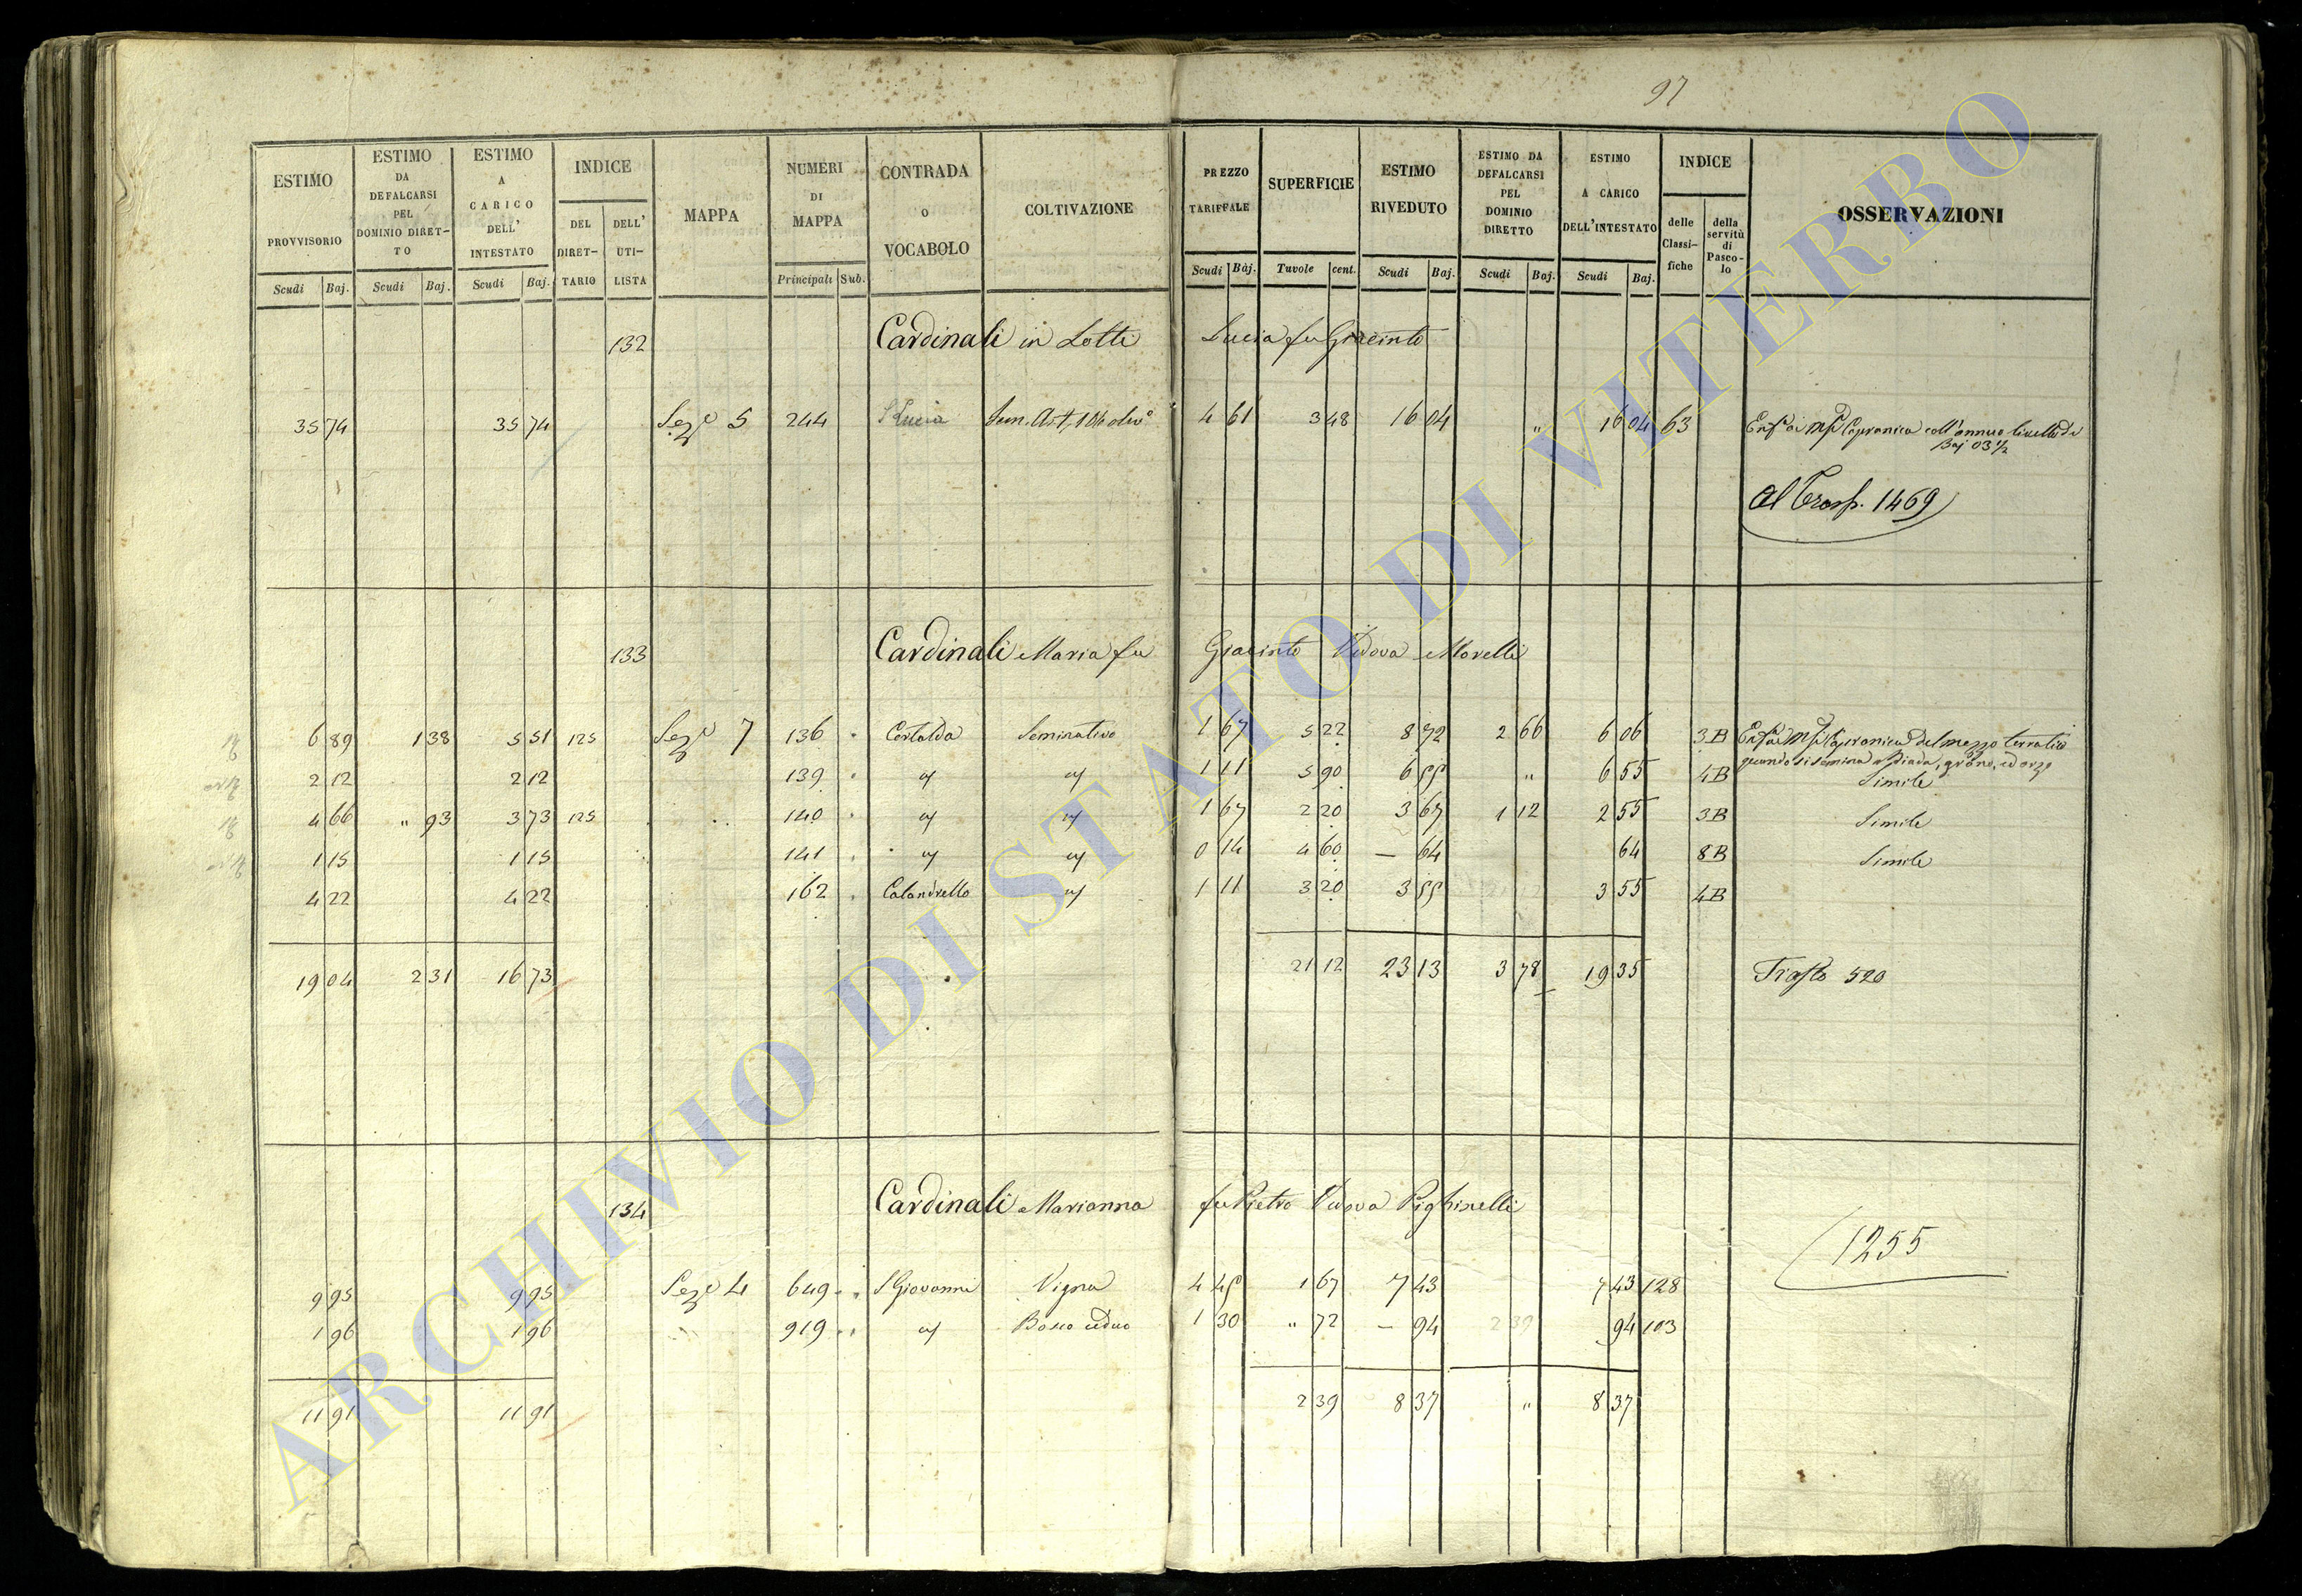 97
ESTIMO PROVVISORIO | ESTIMO DA DEFALCARSI PEL DOMINIO DIRETTO | ESTIMO A CARICO DELL' INTESTATO | INDICE | MAPPA | NUMERI DI MAPPA | CONTRADA O VOCABOLO | COLTIVAZIONE | PREZZO TARIFFALE | SUPERFICIE | ESTIMO RIVEDUTO | ESTIMO DA DEFALCARSI PEL DOMINIO DIRETTO | ESTIMO A CARICO DELL'INTESTATO | INDICE | OSSERVAZIONI
DEL DIRET-TARIO | DELL' UTI-LISTA | delle Classi-fiche | della servitù di Pasco-lo
Scudi | Baj. | Scudi | Baj. | Scudi | Baj. | Principali | Sub. | Scudi | Baj. | Tavole | cent. | Scudi | Baj. | Scudi | Baj. | Scudi | Baj.
132 Cardinali in Lotti Lucia fu Giacinto
35 74 | 35 74 | Sez.e 5 | 244 | S Lucia | 4 61 | 3 48 | 16 04 | " | 16 04 | 63 | Capranica coll'annuo livello di
Baj 03 1/2
Al Trasp. 1469
133 Cardinali Maria fu Giacinto Vedova Morelli
6 89 | 1 38 | 5 51 | 125 | Sez.e 7 | 136 | Seminativo | 1 67 | 5 22 | 8 72 | 2 66 | 6 06 | 3B | Capranica del mezzo terratico
quando si semina a Biada, grano, ed orzo
2 12 | 2 12 | 139 | " | " | 1 11 | 5 90 | 6 55 | " | 6 55 | 4B | Simile
4 66 | " 93 | 3 73 | 125 | 140 | " | " | 1 67 | 2 20 | 3 67 | 1 12 | 2 55 | 3B | Simile
1 15 | 1 15 | 141 | " | " | 0 14 | 4 60 | — 64 | 64 | 8B | Simile
4 22 | 4 22 | 162 | Calandrello | " | 1 11 | 3 20 | 3 55 | 3 55 | 4B
19 04 | 2 31 | 16 73 | 21 12 | 23 13 | 3 78 | 19 35 | 520
134 Cardinali Marianna fu Pietro Vedova Pighinelli
1255
9 95 | 9 95 | Sez.e 4 | 649 | S Giovanni | Vigna | 4 45 | 1 67 | 7 43 | 7 43 | 128
1 96 | 1 96 | 919 | " | Bosco ceduo | 1 30 | " 72 | — 94 | 94 | 103
11 91 | 11 91 | 2 39 | 8 37 | " | 8 37
ARCHIVIO DI STATO DI VITERBO